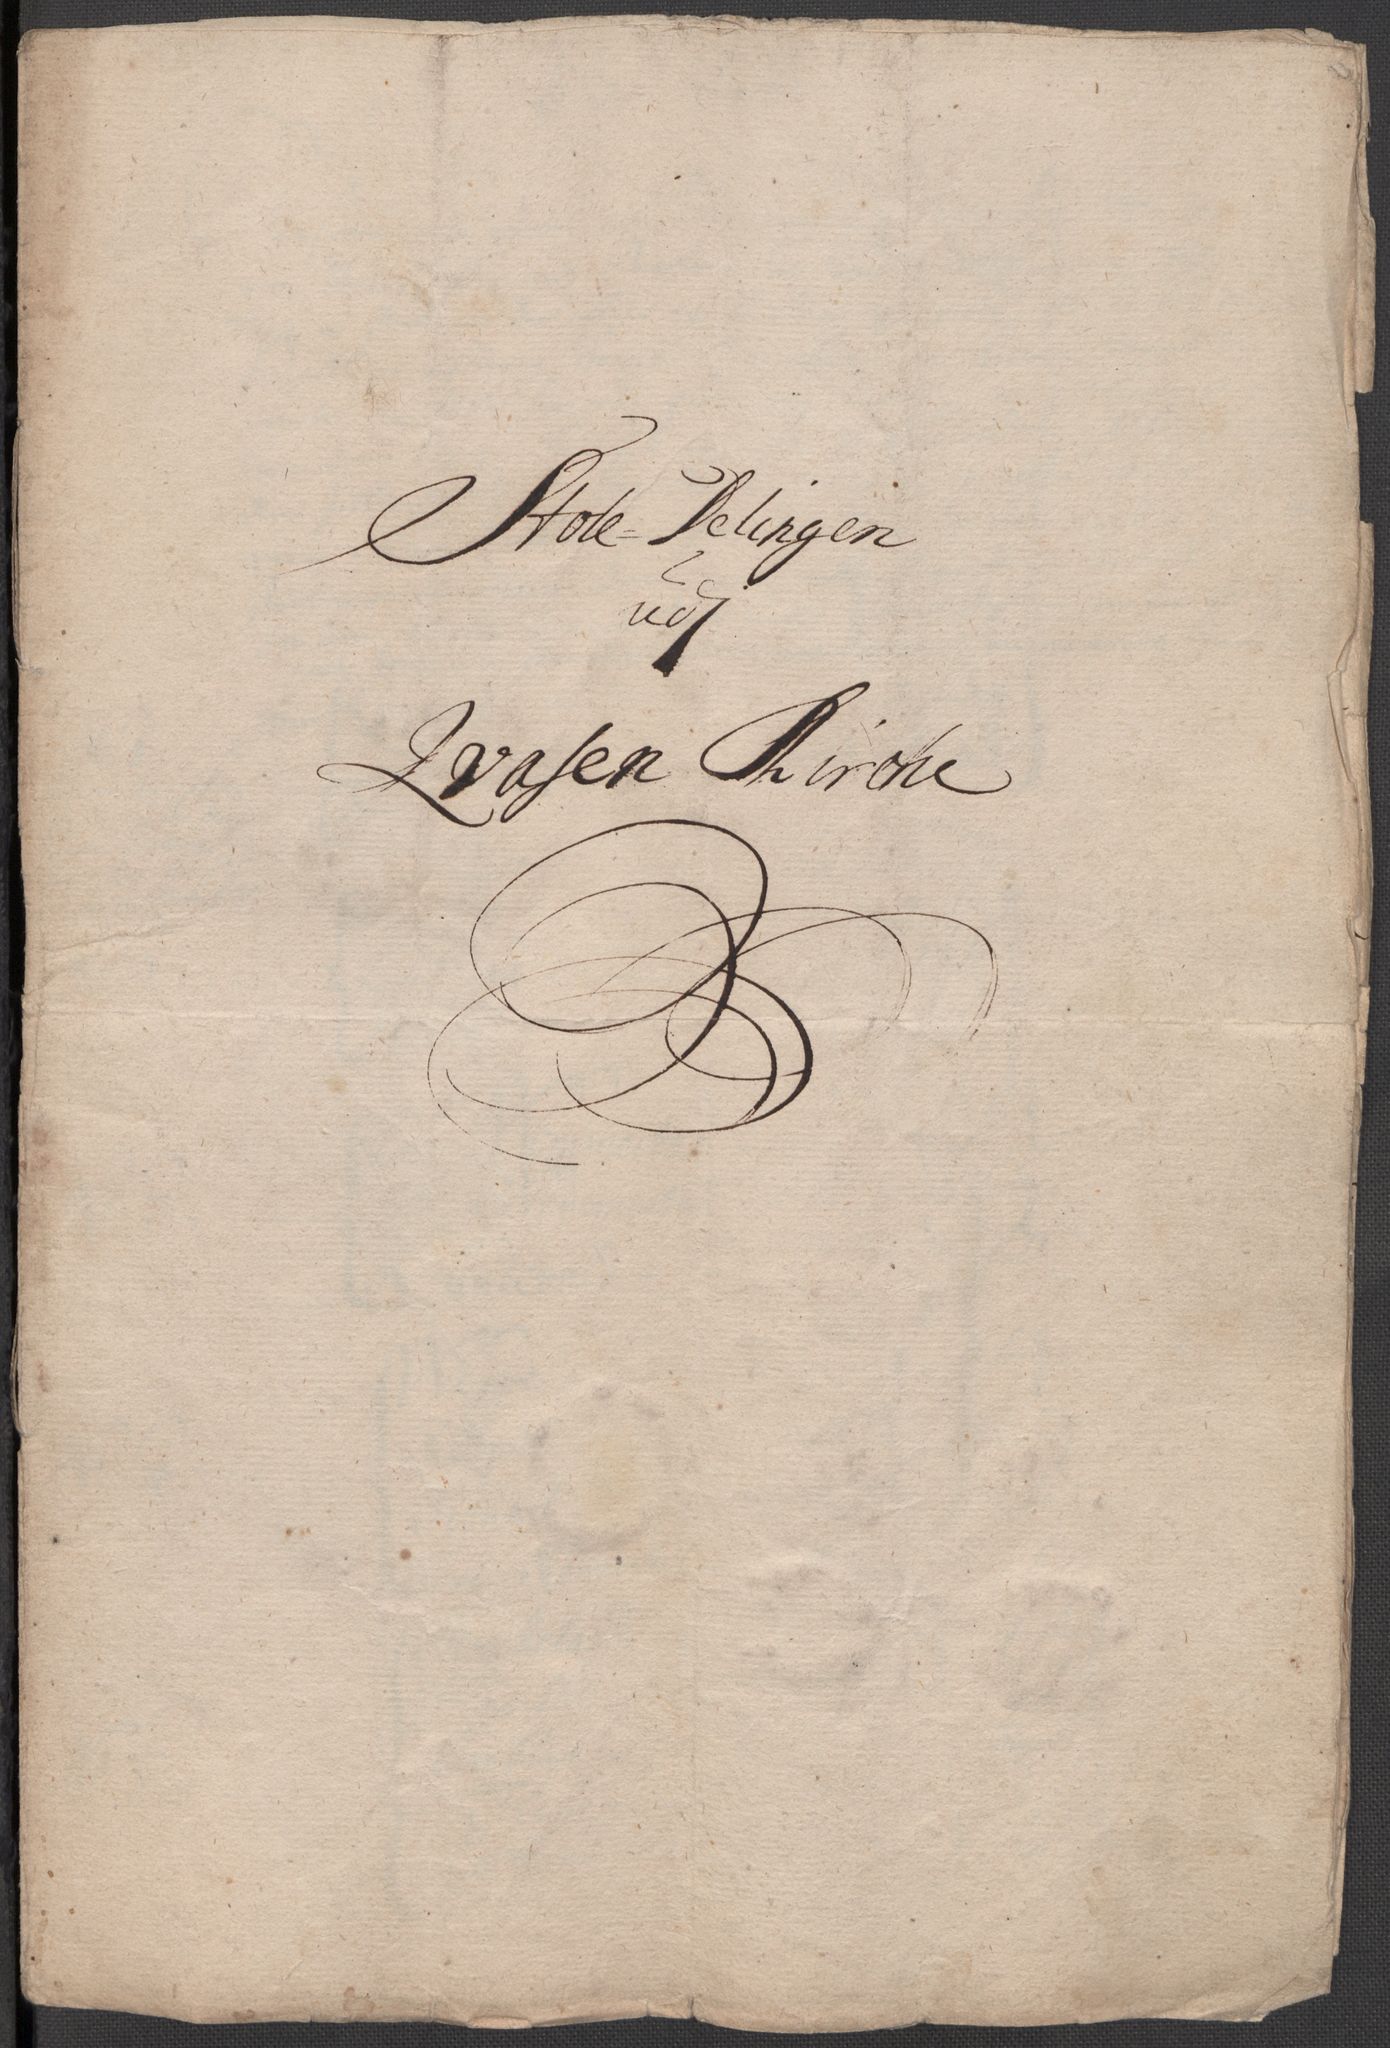 Stole-Delingen
udj
Qvasen Kircke